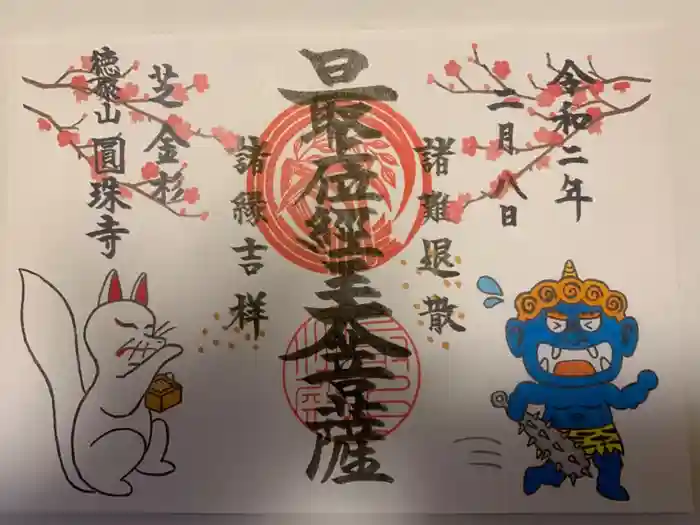 令和二年
二月八日
諸難退散
最上位經王大菩薩
諸縁吉祥
芝金杉
圓珠寺